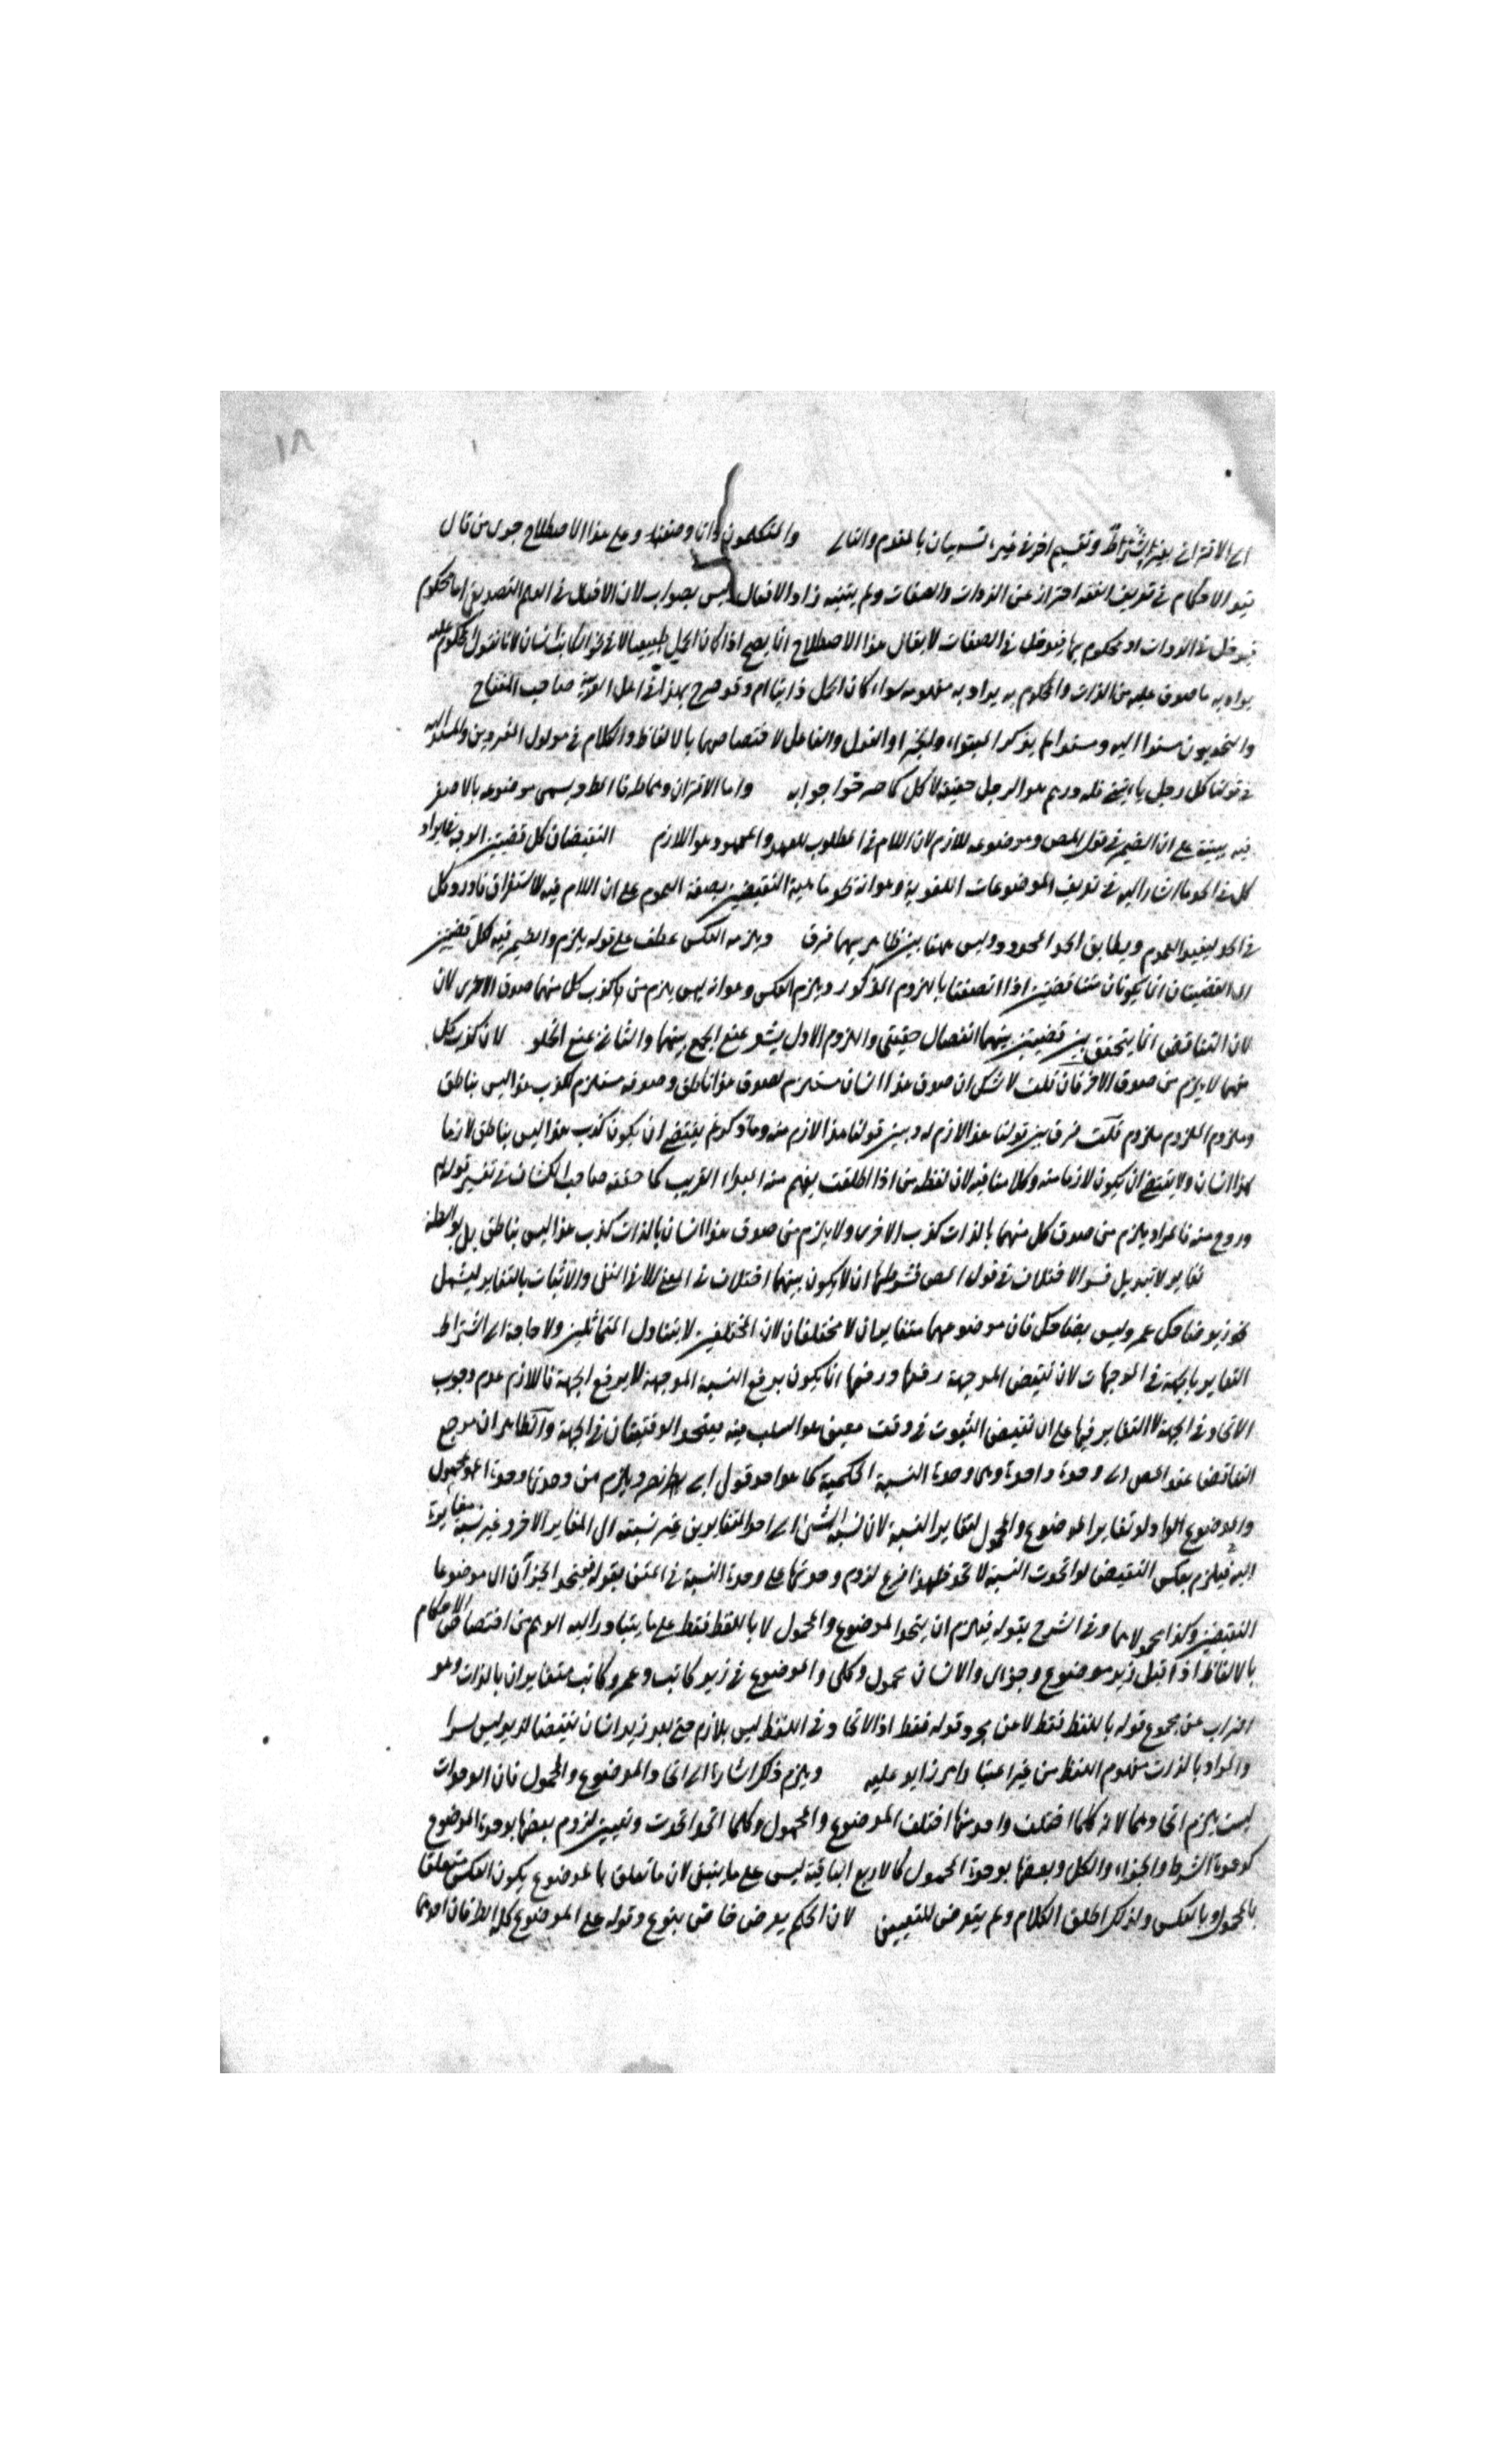 ١٨
اى الاقترانى بغير الشرط وتقسيم اخر فى غيره تسميان بالمقدم والتالى والمتكلمون ذاتا وصفة وعلى هذا الاصطلاح جرى من قال
قيد الاحكام فى تعريف الفقه احتراز عن الذوات والصفات ولم يتنبه زاد الافعال ليس بصواب لان الافعال فى العلم التصديقى اما محكوم
فيدخل فى الذوات او محكوم بها فيدخل فى الصفات لا يقال هذا الاصطلاح انما يصح اذا كان الحمل طبيعيا لا فى نحو الكاتب انسان لانا نقول المحكوم عليه
يراد به ما صدق عليه من الذات والمحكوم به يراد به مفهومه سواء كان الحمل ذاتيا ام وقد صرح بهذا فى اهل العربية صاحب المفتاح
والنحويون مسندا اليه ومسندا لم يذكر المبتداء والخبر او الفعل والفاعل لاختصاصهما بالالفاظ والكلام فى مدلول المفردين والمسند اليه
فى قولنا كل رجل ياتينى فله درهم هو الرجل حقيقة لا كل كما صرحوا به واما الاقتران وسماطه فالطرد ويسمى موضوعه بالاصغر
فيه يبينه على ان الضمير فى قول المص وموضوعه للازم لان اللام فى المطلوب للعهد والمعهود هو اللازم النقيضان كل قضيتين
كل فى الحد ما اشار اليه فى تعريف الموضوعات اللغوية وهو انه نحو ماهية النقيضين بصفة العموم على ان اللام فيه للاستغراق فاورد كل
فى الحد ليفيد العموم ويطابق الحد المحدود وليس ههنا بين ظاهريهما فرق ويلزمه العكس عطف على قوله يلزم والضمير فيه لكل قضيتين
اى القضيتان انما يكونان متناقضتين اذا اتصفتا باللزوم المذكور ويلزم العكس وهو انه يلزم من كذب كل منهما صدق الاخرى لان
لان التناقض انما يتحقق بين قضيتين بينهما انفصال حقيقى واللزوم الاول يشعر بمنع الجمع بينهما والثانى بمنع الخلو لان كذب كل
منهما لا يلزم من صدق الاخر فان قلت لا شك ان صدق هذا انسان مستلزم لصدق هذا ناطق وصدقه مستلزم لكذب هذا ليس بناطق
وملزوم الملزوم ملزوم قلت فرق بين قولنا هذا لازم له وبين قولنا هذا لازم منه وما ذكرتم يقتضى ان يكون كذب هذا ليس بناطق لازما
لهذا انسان ولا يقتضى ان يكون لازما منه وكلامنا فيه لان لفظه من اذا اطلقت يفهم منه المبداء القريب كما حققه صاحب الكشاف فى تفسير قوله
وروح منه فالمراد يلزم من صدق كل منهما بالذات كذب الاخرى ولا يلزم من صدق هذا انسان بالذات كذب هذا ليس بناطق بل بواسطة
تغاير لا تبديل فسر الاختلاف فى قول المص فشرطهما ان لا يكون بينهما اختلاف فى المعنى الا فى النفى والاثبات بالتغاير ليشمل
نحو زيد ضاحك عمرو ليس بضاحك فان موضوعهما متغايران لا مختلفان لان المختلفين لا يتناول المتماثلين ولا حاجة الى اشتراط
التغاير بالجهة فى الموجهات لان نقيض الموجهة رفعها ورفعها انما يكون برفع النسبة الموجهة لا برفع الجهة فاللازم عدم وجوب
الاتحاد فى الجهة لا التغاير فيها على ان نقيض الثبوت فى وقت معين هو السلب فيه فيتحد الوقتيتان فى الجهة والظاهر ان مرجع
التناقض عند المص الى وحدة واحدة وهى وحدة النسبة الحكمية كما هو احد قولى ابى نصر ويلزم من وحدتها وحدة المحمول
والموضوع اذ لو تغاير الموضوع والمحمول لتغاير النسبة لان نسبة الشئ الى احد المتغايرين غير نسبته الى المغاير الاخر وغير نسبة مغايره
اليه فيلزم بعكس النقيض لو اتحدت النسبة لاتحد فلهذا فرع لزوم وحدتهما على وحدة النسبة فى المتن بقوله فيتحد الجزآن اى موضوعا
النقيضين وكذا محمولاهما وفى الشرح بقوله فيلزم ان يتحد الموضوع والمحمول لا باللفظ فقط على ما يتبادر اليه الوهم من اختصاص الاحكام
بالالفاظ اذا قيل زيد موضوع وجزئى والانسان محمول وكلى والموضوع فى زيد كاتب وعمرو كاتب متغايران بالذات وهو
اضراب عن مجموع قوله باللفظ فقط لا عن مجرد قوله فقط اذ الاتحاد فى اللفظ ليس بلازم حتى يعد زيد انسان نقيضا لزيد ليس بشرا
والمراد بالذات مفهوم اللفظ من غير اعتبار امر زايد عليه ويلزم ذكر اشارة الى اتحاد الموضوع والمحمول فان الوحدات
الست يلزم اتحادهما لانه كلما اختلف واحد منها اختلف الموضوع والمحمول وكلما اتحدا اتحدت وتعيين لزوم بعضها بوحدة الموضوع
كوحدة الشرط والجزاء والكل وبعضها بوحدة المحمول كالاربع الباقية ليس على ما ينبغى لان ما تعلق بالموضوع يكون العكس متعلقا
بالمحمول وبالعكس ولذلك اطلق الكلام ولم يتعرض للتعيين لان الحكم بعرض خاص بنوع وقوله على الموضوع كل الطرفان احدهما